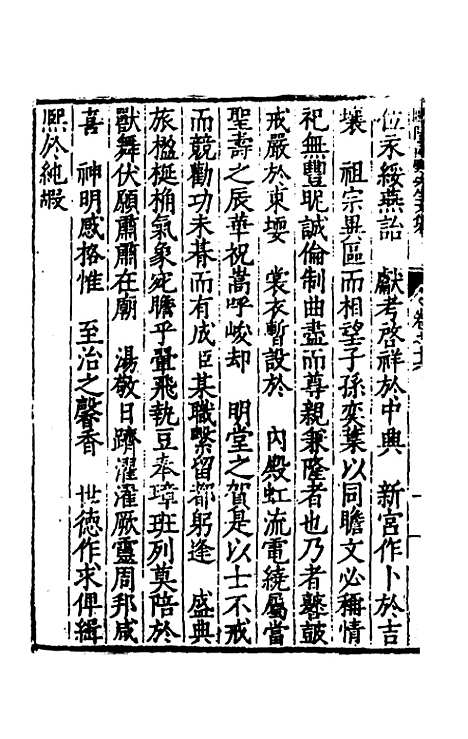 位永綏燕詒　獻考啓祥於中興　新宮作卜於吉
壤　祖宗異區而相望子孫奕葉以同瞻文必稱情
祀無豐昵誠倫制曲盡而尊親兼隆者也乃者鼛鼓
戒嚴於東堧　裳衣暫設於　內殿虹流電繞屬當
聖壽之辰華祝嵩呼峻却　明堂之賀是以士不戒
而競勸功未朞而有成臣某職繫留都躬逢　盛典
旅楹梴桷氣象死瞻乎翬飛執豆奉璋班列莫陪於
獸舞伏願肅肅在廟　湯敬日躋濯濯厥靈周邦咸
喜　神明感格惟　至治之馨香　世德作求俾緝
熙於純嘏